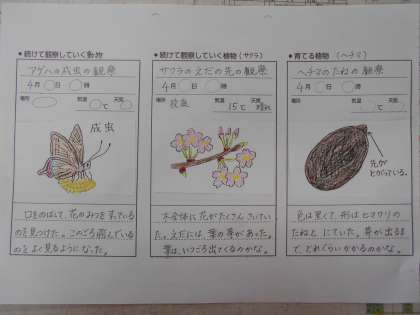 ・続けて観察していく動物
アゲハの成虫の観察
4月 日 時
場所 気温 天気
℃
成虫
口をのばして、花のみつを吸っている
のを見つけた。このごろ飛んでいる
のをよく見るようになった。
・続けて観察していく植物 (サクラ)
サクラのえだの先の観察
4月 日 時
場所 気温 天気
校庭 15℃ 晴れ
木全体に花がたくさんさいてい
た。えだには、葉の芽があった。
葉は、いつごろ出てくるのかな。
・育てる植物 (ヘチマ)
ヘチマのたねの観察
4月 日 時
場所 気温 天気
℃
先が
とがっている。
色は黒くて、形はヒマワリの
たねと にていた。芽が出るま
で、どれぐらいかかるのかな。